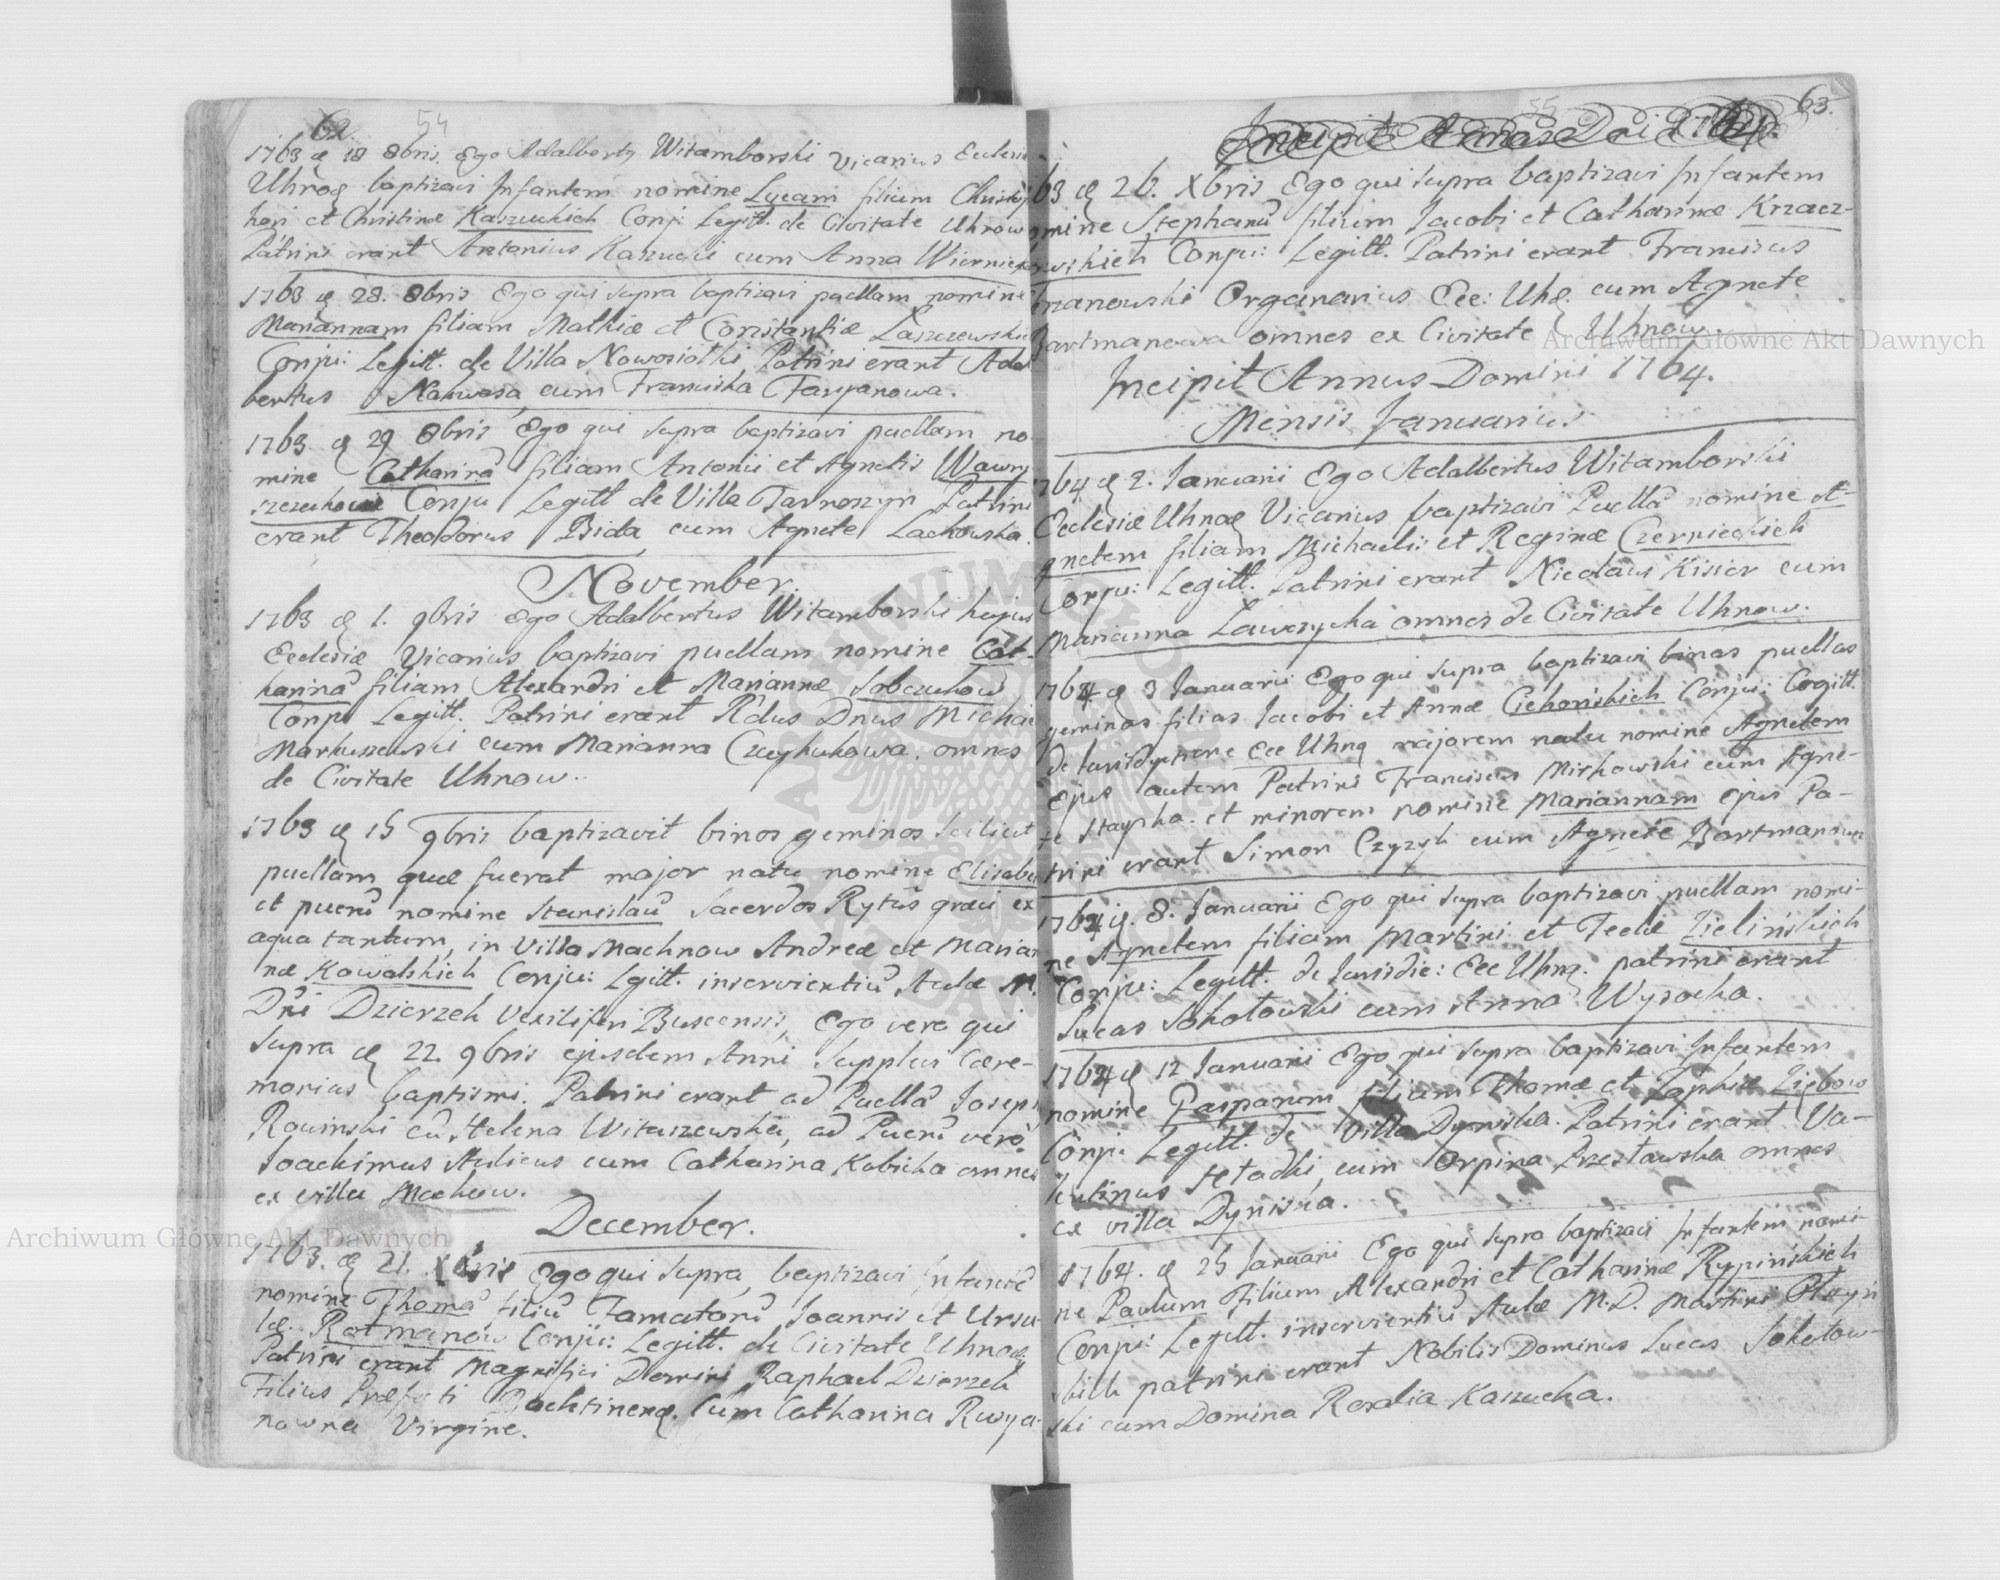 62. 54
1763 d 18 8bris. Ego Adalberty Witamborski Vicarius Ecclesiæ
Uhnoæ baptizavi Infantem nomine Lucam filium Christo
heri et Christinæ Kaszuckich Conj: Legitt. de Civitate Uhnow
Patrini erant Antonius Kaszucki cum Anna
1763 d 28. 8bris Ego qui supra baptizavi puellam nomine
Mariannam filiam Mathiæ et Constantiæ Laszczewskich
Conju: Legitt. de Villa Nowosiołki Patrini erant Adal
bertus cum Franciska
1763 d 29 8bris Ego qui supra baptizavi puellam no-
mine Catharinā filiam Antonii et Agnetis Wawry
szczuhow Conju Legitt de Villa Tarnoszyn Patrini
erant Theodorus Bida cum Agnete Lachowska.
November.
1763 d 1. 9bris Ego Adalbertus Witamborski hujus
Ecclesiæ Vicarius baptizavi puellam nomine Cat-
harinā filiam Alexandri et Mariannæ Sobczukow
Conju Legitt. Patrini erant R'dus Dnus Michael
Markuszewski cum Marianna omnes
de Civitate Uhnow..
1763 d 15 9bris baptizavit binos geminos scilicet
puellam quæ fuerat major natu nomine Elisabe
et puerū nomine Stanislaū Sacerdos Rytūs græci ex
aqua tantum, in Villa Machnow Andreæ et Marian
næ Kowalskich Conju: Lgitt. inservientiū Aulæ M.
Dn̄i Dzierzek Vexiliferi Buscensis, Ego vero qui
supra d 22. 9bris ejusdem Anni supplevi cære-
monias baptismi. Patrini erant ad Puellā Joseph
Rowinski cū Helena Witaszewska, ad Puerū vero
Joachimus Aulicus cum Catharina Kubicka omnes
ex villa Machnow.
December.
1763. d 21. Xbris Ego qui supra, baptizavi Infantē
nomine Thomā filiū Famatorū Joannis et Ursu
læ Rotmanow Conju: Legitt. de Civitate Uhnow
Patrini erant Magnifici Domini Raphael Dzierzek
Filius Præfati cum Catharina
nowna Virgine.
55 63.
Incipit Annus Dni 1764.
63 d 26. Xbris Ego qui supra baptizavi Infantem
omine Stephanū filium Jacobi et Catharinæ Krzacz-
owskich Conju: Legitt. Patrini erant Franciscus
Organarius Ecc: Uhæ. cum Agnete
Bartmanowa omnes ex Civitate Uhnow.
Incipit Annus Domini 1764.
Mensis Januarius
1764 d 2. Januarii Ego Adalbertus Witamborski
Ecclesiæ Uhnoæ Vicarius baptizavi Puellā nomine A-
gnetem filiam Michaelis et Reginæ Czernieckich
Conju: Legitt. Patrini erant Nicolaus Kisier cum
Marianna Lawczycka omnes de Civitate Uhnow.
1764 d 3 Januarii Ego qui supra baptizavi binas puellas
geminas filias Jacobi et Annæ Cichonskich Conju: Legitt.
de Jurisdyctione Ecc Uhnæ majorem natu nomine Agnetem
Ejus autem Patrini Franciscus Mirkowski cum Agne-
te et minorem nomine Mariannam ejus Pa-
trini erant Simon Czyzyk cum Agnete Bartmanowa
1764 d 8. Januarii Ego qui supra baptizavi puellam nomi-
ne Agnetem filiam Martini et Teclæ Zielinskich
Conju: Legitt. de Jurisdic: Ecc Uhnæ. patrini erant
Lucas Sokołowski cum Anna Wysocka.
1764 d 12 Januarii Ego qui supra baptizavi Infantem
nomine Gasparem filium Thomæ et Sophiæ Ziębow
Conju Legitt. de Villa Dyniska. Patrini erant Va-
lentinus cum Przesławska omnes
ex villa Dyniska.
1764. d 25 Januarii Ego qui supra baptizavi Infantem nomi-
ne Paulum Filium Alexandri et Catharinæ Rypinskich
Conju: Legitt. inservientiū Aulæ M. D. Martini
patrini erant Nobilis Dominus Lucas Sokołow-
ski cum Domina Rosalia Kaszucka.
Archiwum Główne Akt Dawnych
Archiwum Główne Akt Dawnych